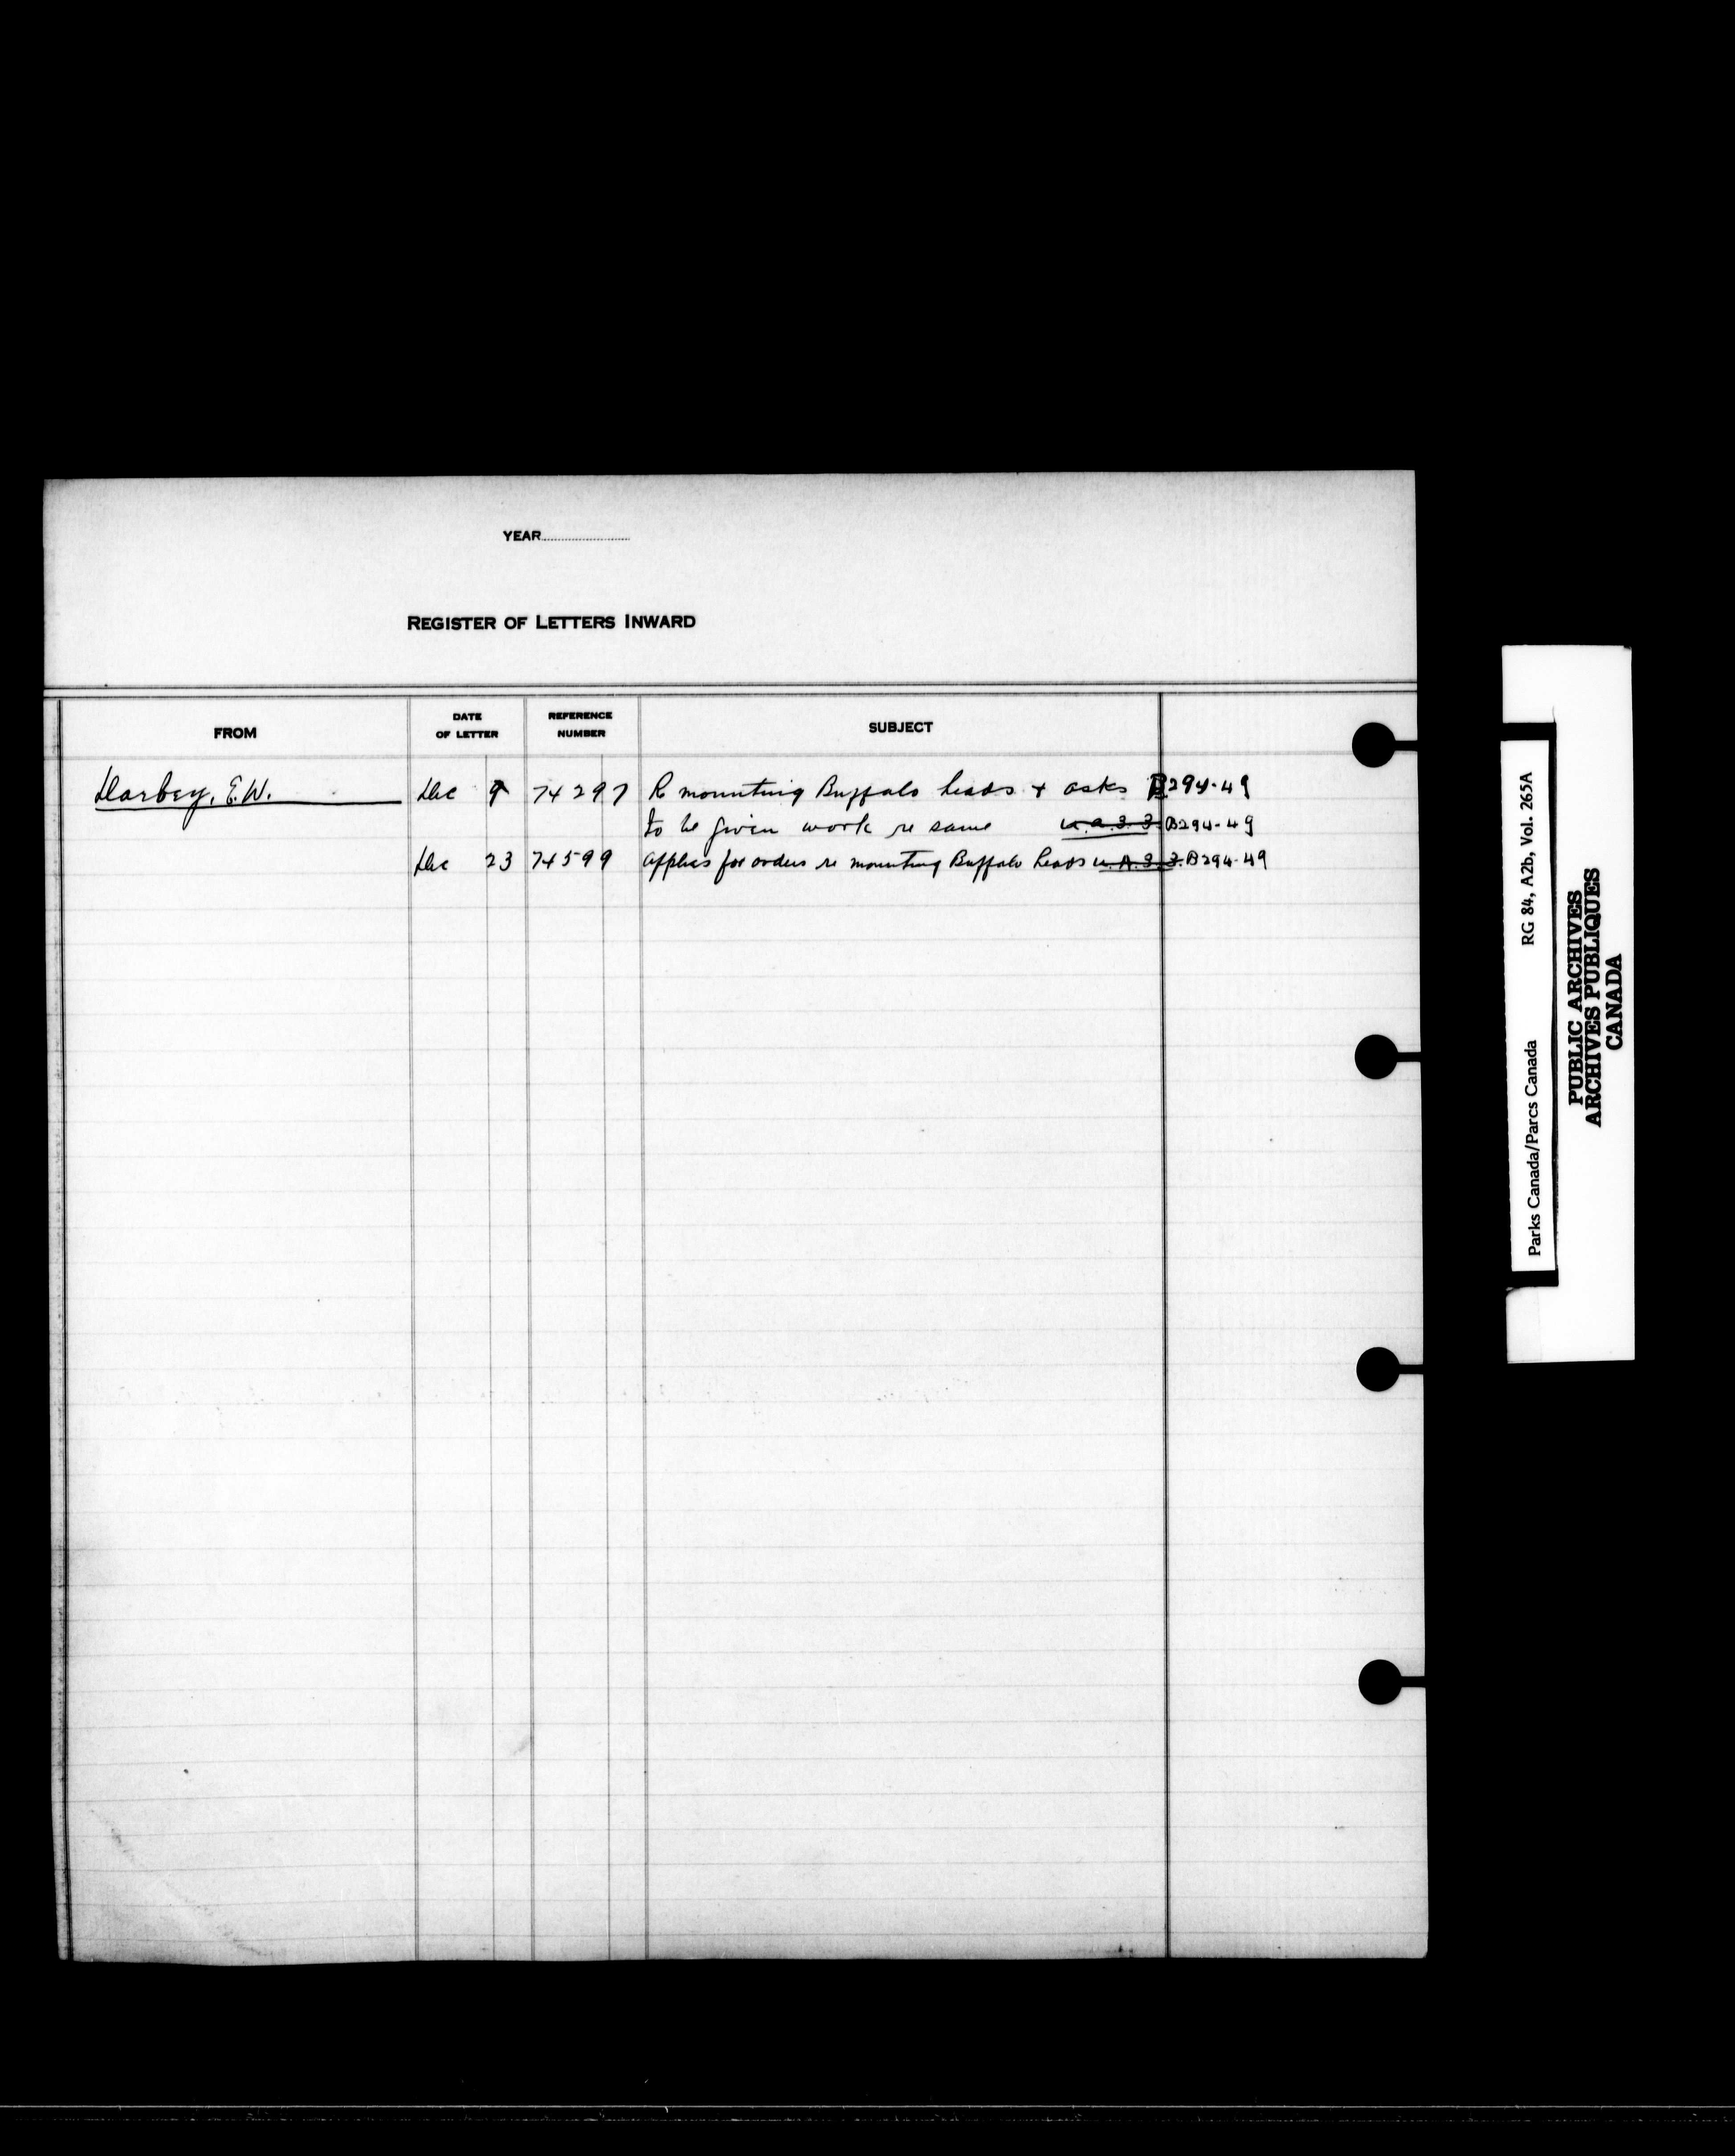 YEAR
REGISTER OF LETTERS INWARD
FROM DATE OF LETTER REFERENCE NUMBER SUBJECT
Darbey, E.W. Dec 9 74297 R mounting Buffalo heads + asks B294-49
to be given work re same U.A.3.3. B294-49
Dec 23 74599 applies for orders re mounting Buffalo heads U.A.3.3. B294-49
Parks Canada/Parcs Canada RG 84, A2b, Vol. 265A
PUBLIC ARCHIVES
ARCHIVES PUBLIQUES
CANADA